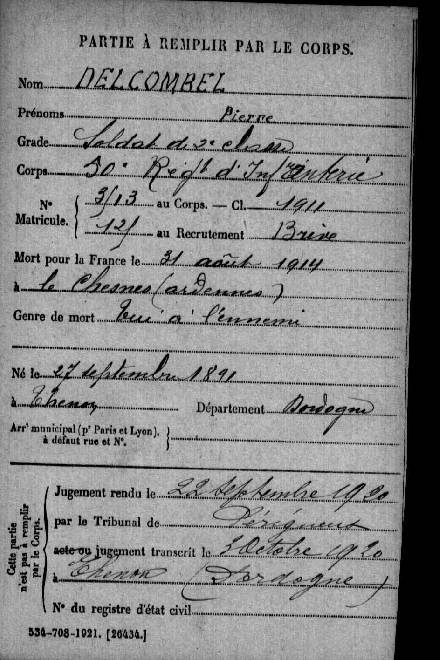 PARTIE À REMPLIR PAR LE CORPS.
Nom DELCOMBEL
Prénoms Pierre
Grade Soldat de 2e classe
Corps 50e Régt d'Infanterie
N° Matricule. 3713 au Corps. — Cl. 1911
121 au Recrutement Brive
Mort pour la France le 31 août 1914
à le Chesnes (ardennes)
Genre de mort Tué à l'ennemi
Né le 27 septembre 1891
à Thenon Département Dordogne
Arrt municipal (pr Paris et Lyon), à défaut rue et N°.
Cette partie n'est pas à remplir par le Corps.
Jugement rendu le 22 septembre 1920
par le Tribunal de Périgueux
acte ou jugement transcrit le 3 Octobre 1920
à Thenon (Dordogne)
N° du registre d'état civil
534-708-1921. [26434.]